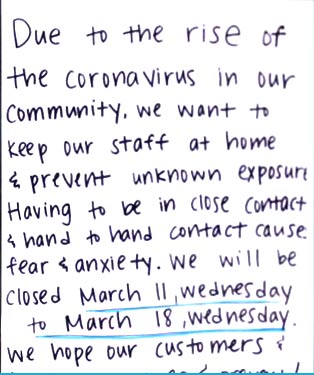 Due to the rise of
the coronavirus in our
community, we want to
keep our staff at home
& prevent unknown exposure
Having to be in close contact
& hand to hand contact cause
fear & anxiety. We will be
closed March 11, wednesday
to March 18, wednesday.
we hope our customers &